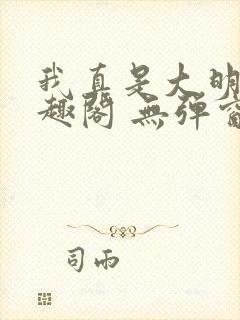 我真是大明
趣閣 無彈窗
司雨